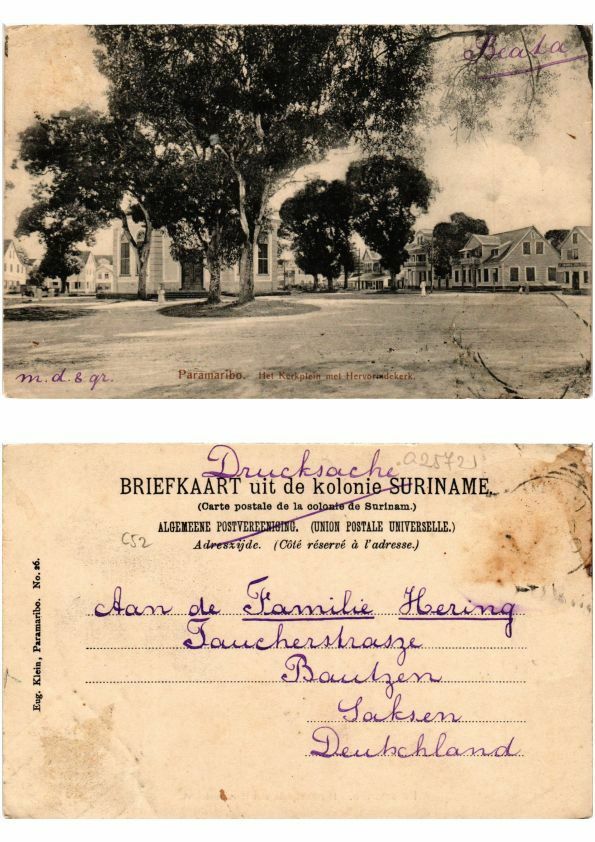 Beata
m. d. & gr.
Paramaribo. Het Kerkplein met Hervormdekerk.
Drucksache
a25721
BRIEFKAART uit de kolonie SURINAME.
(Carte postale de la colonie de Surinam.)
ALGEMEENE POSTVEREENIGING. (UNION POSTALE UNIVERSELLE.)
C52
Adreszijde. (Côté réservé à l'adresse.)
Aan de Familie Hering
Taucherstrasze
Bautzen
Saksen
Deutschland
Eug. Klein, Paramaribo. No. 26.